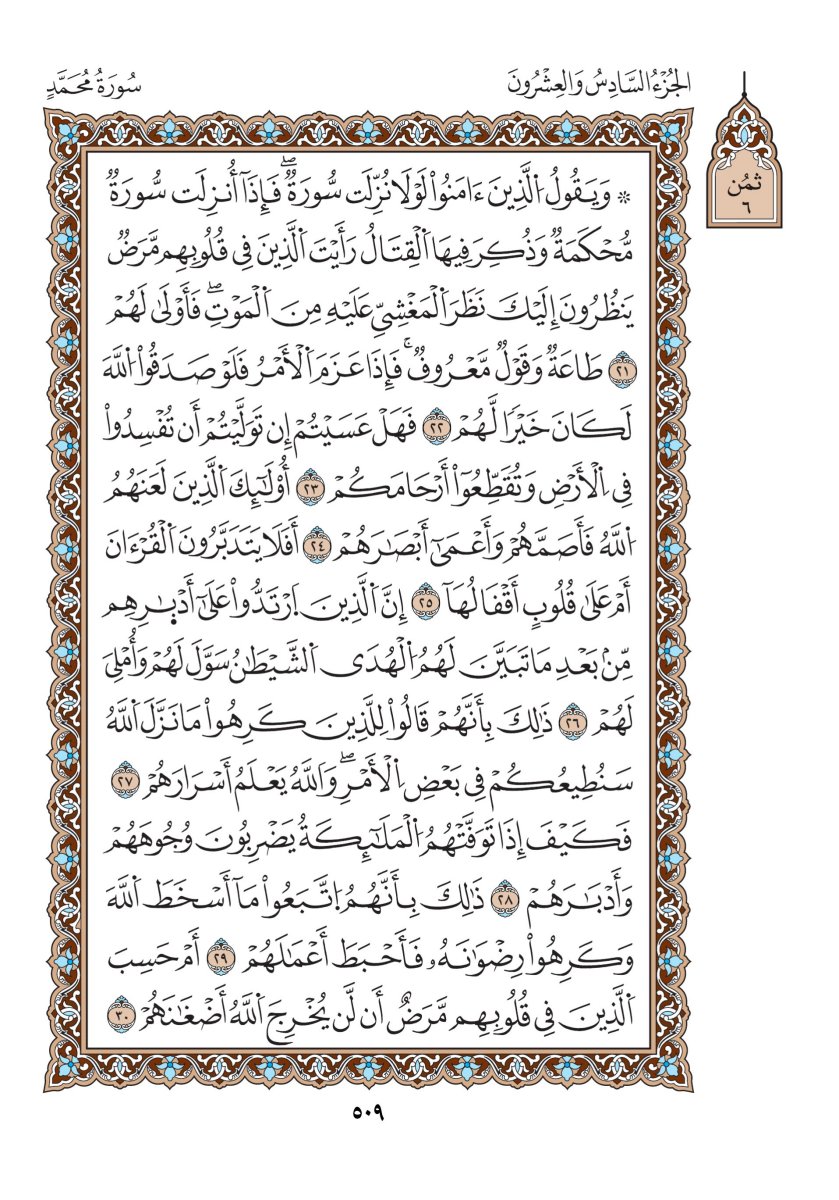 الجُزْءُ السَّادِسُ وَالعِشْرُونَ
سُورَةُ مُحَمَّدٍ
ثمُن
٦
۞ وَيَقُولُ اُ۬لَّذِينَ ءَامَنُواْ لَوْلَا نُزِّلَت سُّورَةٞۖ فَإِذَآ أُنزِلَت سُّورَةٞ
مُّحْكَمَةٞ وَذُكِرَ فِيهَا اَ۬لْقِتَالُ رَأَيْتَ اَ۬لَّذِينَ فِي قُلُوبِهِم مَّرَضٞ
يَنظُرُونَ إِلَيْكَ نَظَرَ اَ۬لْمَغْشِيِّ عَلَيْهِ مِنَ اَ۬لْمَوْتِۖ فَأَوْلَىٰ لَهُمْ
٢١ طَاعَةٞ وَقَوْلٞ مَّعْرُوفٞۚ فَإِذَا عَزَمَ اَ۬لْأَمْرُ فَلَوْ صَدَقُواْ اُ۬للَّهَ
لَكَانَ خَيْرٗا لَّهُمْ ٢٢ فَهَلْ عَسَيْتُمْ إِن تَوَلَّيْتُمْ أَن تُفْسِدُواْ
فِي اِ۬لْأَرْضِ وَتُقَطِّعُوٓاْ أَرْحَامَكُمْ ٢٣ أُوْلَٰٓئِكَ اَ۬لَّذِينَ لَعَنَهُمُ
اُ۬للَّهُ فَأَصَمَّهُمْ وَأَعْمَىٰٓ أَبْصَٰرَهُمْ ٢٤ أَفَلَا يَتَدَبَّرُونَ اَ۬لْقُرْءَانَ
أَمْ عَلَىٰ قُلُوبٍ أَقْفَالُهَآ ٢٥ إِنَّ اَ۬لَّذِينَ اَ۪رْتَدُّواْ عَلَىٰٓ أَدْبٰ۪رِهِم
مِّنۢ بَعْدِ مَا تَبَيَّنَ لَهُمُ اُ۬لْهُدَى اَ۬لشَّيْطَٰنُ سَوَّلَ لَهُمْ وَأُمْلِيَ
لَهُمْ ٢٦ ذَٰلِكَ بِأَنَّهُمْ قَالُواْ لِلَّذِينَ كَرِهُواْ مَا نَزَّلَ اَ۬للَّهُ
سَنُطِيعُكُمْ فِي بَعْضِ اِ۬لْأَمْرِۖ وَاللَّهُ يَعْلَمُ أَسْرَارَهُمْ ٢٧
فَكَيْفَ إِذَا تَوَفَّتْهُمُ اُ۬لْمَلَٰٓئِكَةُ يَضْرِبُونَ وُجُوهَهُمْ
وَأَدْبَٰرَهُمْ ٢٨ ذَٰلِكَ بِأَنَّهُمُ اُ۪تَّبَعُواْ مَآ أَسْخَطَ اَ۬للَّهَ
وَكَرِهُواْ رِضْوَٰنَهُۥ فَأَحْبَطَ أَعْمَٰلَهُمْ ٢٩ أَمْ حَسِبَ
اَ۬لَّذِينَ فِي قُلُوبِهِم مَّرَضٌ أَن لَّن يُخْرِجَ اَ۬للَّهُ أَضْغَٰنَهُمْ ٣٠
٥٠٩